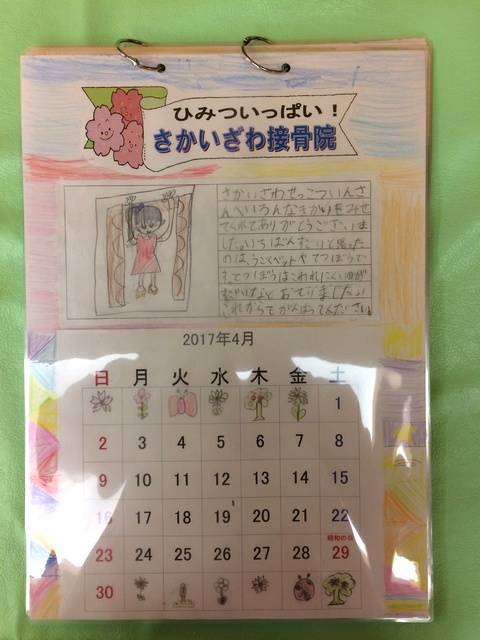 ひみついっぱい!
さかいざわ接骨院
さかいざわせっこついんさ
んへいろんなきかいをみせ
てくれてありがとうございま
した。いちばんすごいと思った
のは、うごくベットやてつぼうで
す。てつぼうはこわれにくいのが
すごいなとおもいました。
これからもがんばってください。
2017年4月
日 月 火 水 木 金 土
1
2 3 4 5 6 7 8
9 10 11 12 13 14 15
16 17 18 19 20 21 22
昭和の日
23 24 25 26 27 28 29
30